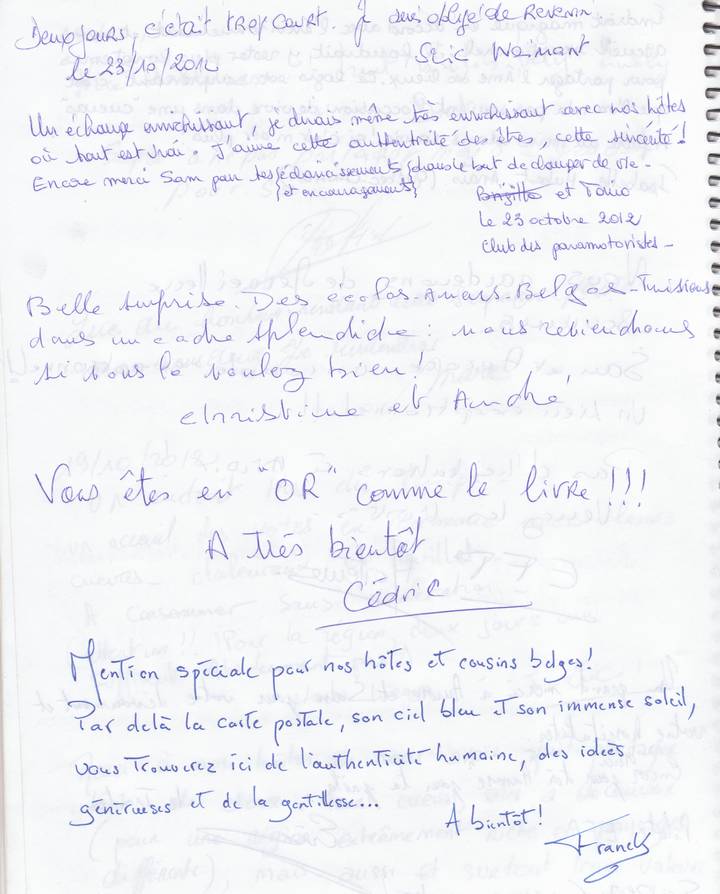 Deux jours, c'était trop court. Je suis obligé de revenir
le 23/10/2012
Un échange enrichissant, je dirais même très enrichissant avec nos hôtes
où tout est vrai. J'aime cette authenticité des êtres, cette sincérité!
Encore merci Sam pour tes éclaircissements dans le but de changer de vie -
{et encouragements}
Brigitte et
Le 23 octobre 2012
Club des paramotoristes -
Belle surprise. Des écolos-anars-Belges-Tunisiens
dans un cadre splendide : nous reviendrons
si vous le voulez bien!
Christine et André
Vous êtes en "OR" comme le livre !!!
A très bientôt
Cédric
Mention spéciale pour nos hôtes et cousins belges!
Par delà la carte postale, son ciel bleu et son immense soleil,
vous trouverez ici de l'authenticité humaine, des idées
généreuses et de la gentillesse...
A bientôt!
Franck